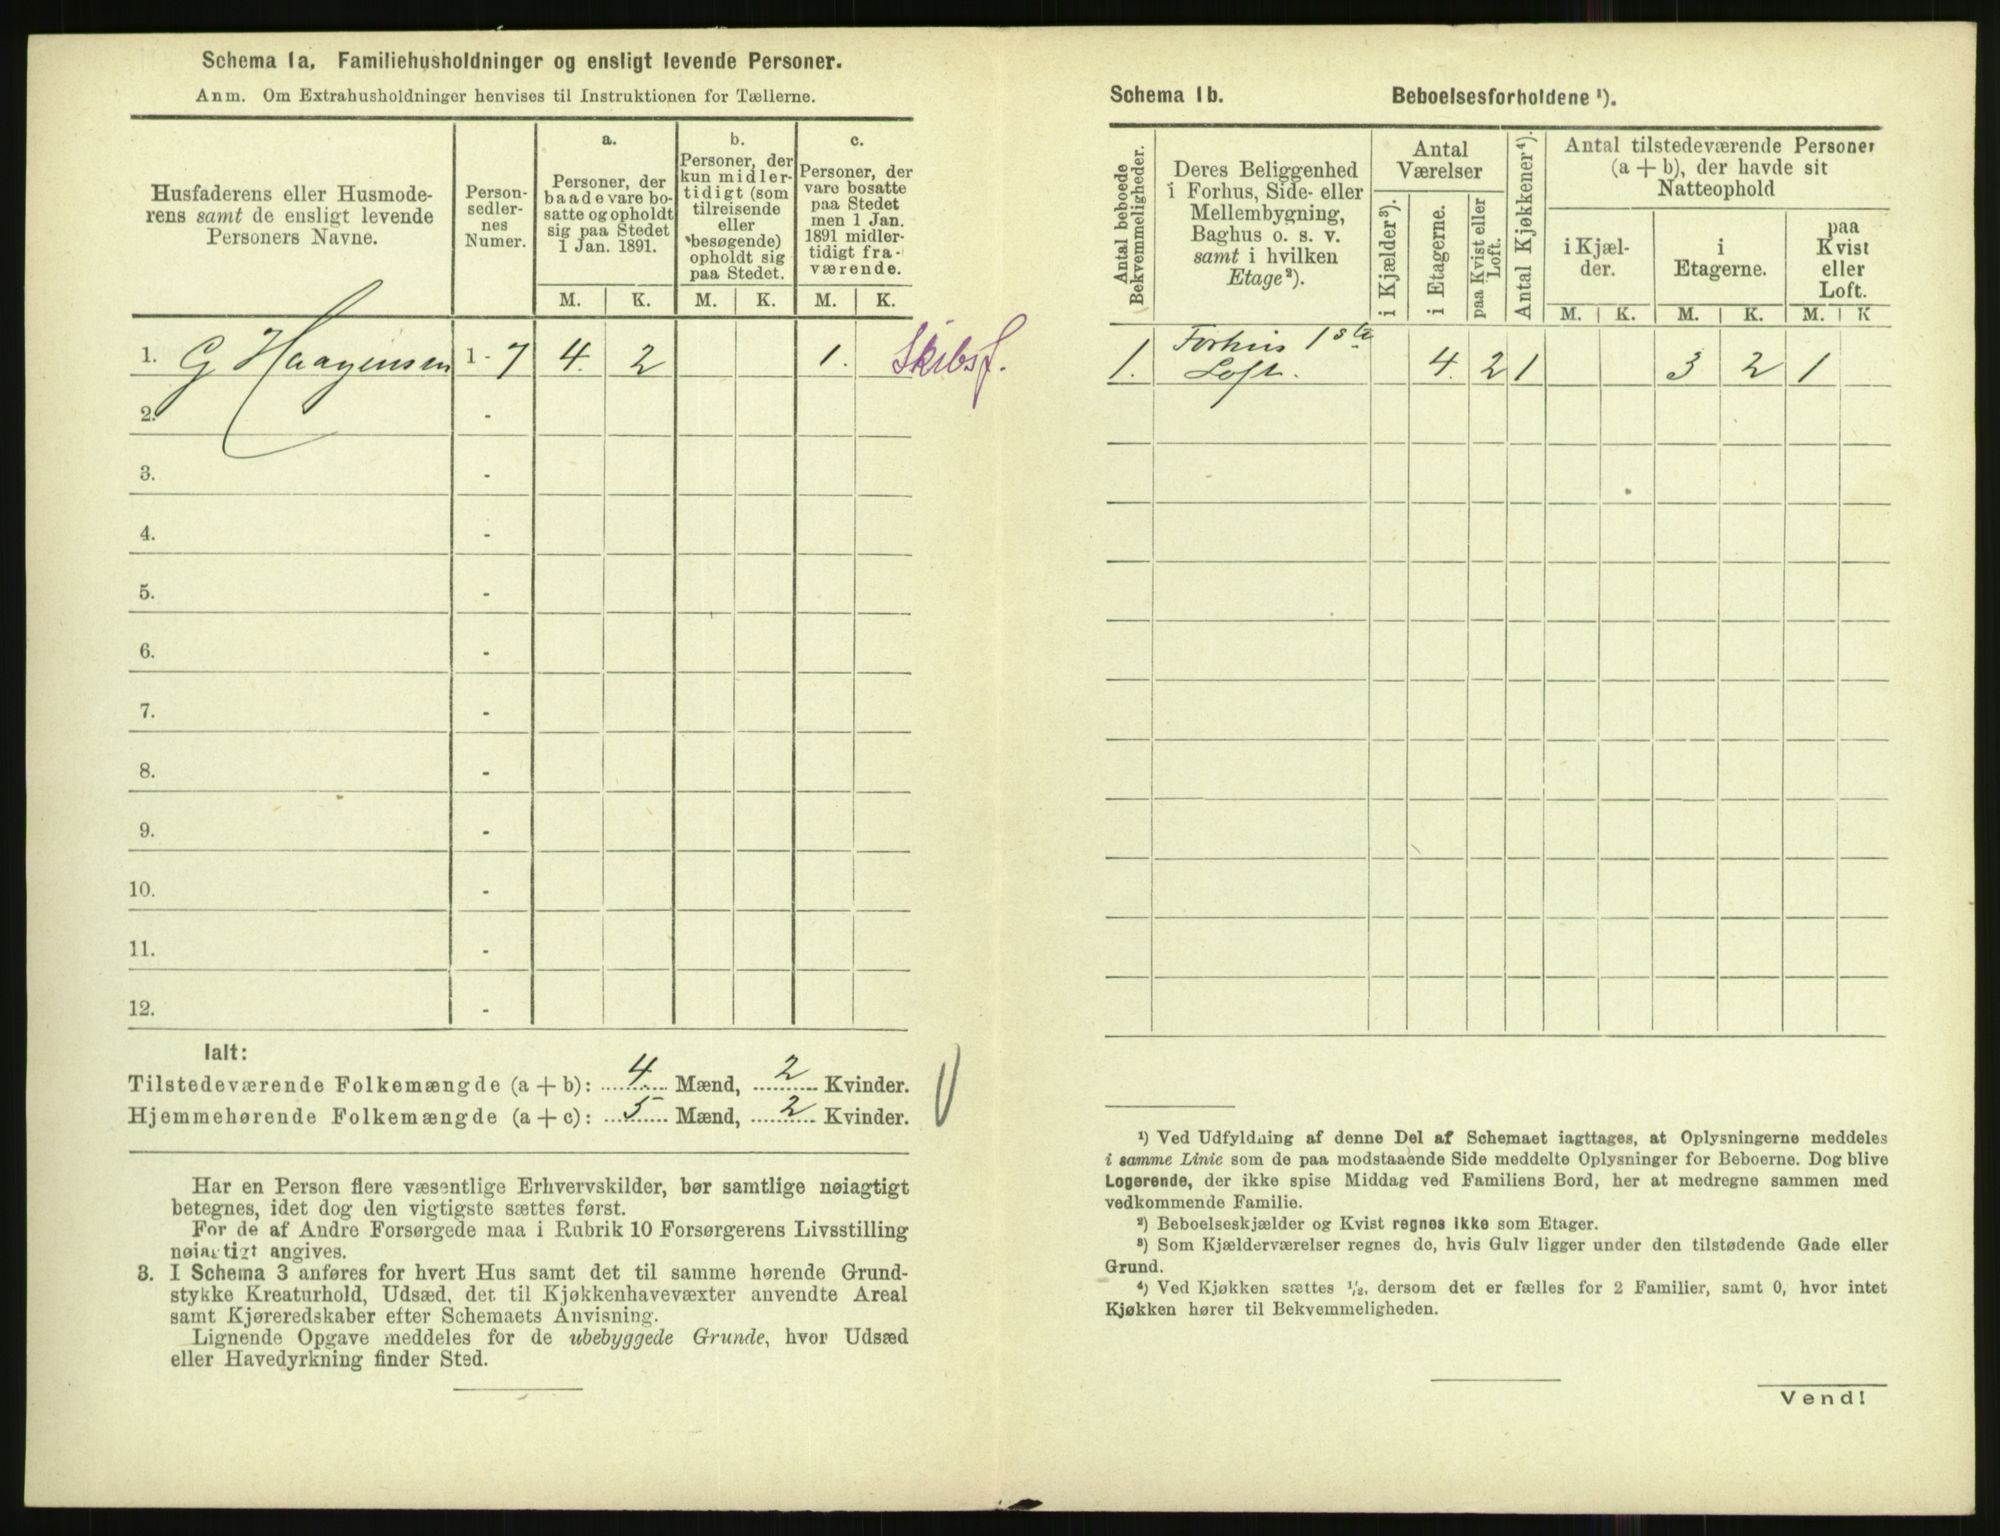 Schema 1a. Familiehusholdninger og ensligt levende Personer.
Anm. Om Extrahusholdninger henvises til Instruktionen for Tællerne.
Husfaderens eller Husmode-
rens samt de ensligt levende
Personers Navne.
Person-
sedler-
nes
Numer.
a.
Personer, der
baade vare bo-
satte og opholdt
sig paa Stedet
1 Jan. 1891.
b.
Personer, der
kun midler-
tidigt (som
tilreisende
eller
besøgende)
opholdt sig
paa Stedet.
c.
Personer, der
vare bosatte
paa Stedet
men 1 Jan.
1891 midler-
tidigt fra-
værende.
M. K. M. K. M. K.
1. G Haagensen 1 - 7 4. 2 1. Skibsf.
2. -
3. -
4. -
5. -
6. -
7. -
8. -
9. -
10. -
11. -
12. -
Ialt:
Tilstedeværende Folkemængde (a + b): 4 Mænd, 2 Kvinder.
Hjemmehørende Folkemængde (a + c): 5 Mænd, 2 Kvinder.
Har en Person flere væsentlige Erhvervskilder, bør samtlige nøiagtigt
betegnes, idet dog den vigtigste sættes først.
For de af Andre Forsørgede maa i Rubrik 10 Forsørgerens Livsstilling
nøiagtigt angives.
3. I Schema 3 anføres for hvert Hus samt det til samme hørende Grund-
stykke Kreaturhold, Udsæd, det til Kjøkkenhavevæxter anvendte Areal
samt Kjøreredskaber efter Schemaets Anvisning.
Lignende Opgave meddeles for de ubebyggede Grunde, hvor Udsæd
eller Havedyrkning finder Sted.
Schema 1b. Beboelsesforholdene ¹).
Antal beboede
Bekvemmeligheder.
Deres Beliggenhed
i Forhus, Side- eller
Mellembygning,
Baghus o. s. v.
samt i hvilken
Etage²).
Antal
Værelser
i Kjælder³).
i Etagerne.
paa Kvist eller
Loft.
Antal Kjøkkener⁴).
Antal tilstedeværende Personer
(a + b), der havde sit
Natteophold
i Kjæl-
der.
i
Etagerne.
paa
Kvist
eller
Loft.
M. K. M. K. M. K
1. Forhus 1ste
Loft. 4. 2 1 3 2 1
¹) Ved Udfyldning af denne Del af Schemaet iagttages, at Oplysningerne meddeles
i samme Linie som de paa modstaaende Side meddelte Oplysninger for Beboerne. Dog blive
Logerende, der ikke spise Middag ved Familiens Bord, her at medregne sammen med
vedkommende Familie.
²) Beboelseskjælder og Kvist regnes ikke som Etager.
³) Som Kjælderværelser regnes de, hvis Gulv ligger under den tilstødende Gade eller
Grund.
⁴) Ved Kjøkken sættes ½, dersom det er fælles for 2 Familier, samt 0, hvor intet
Kjøkken hører til Bekvemmeligheden.
Vend!